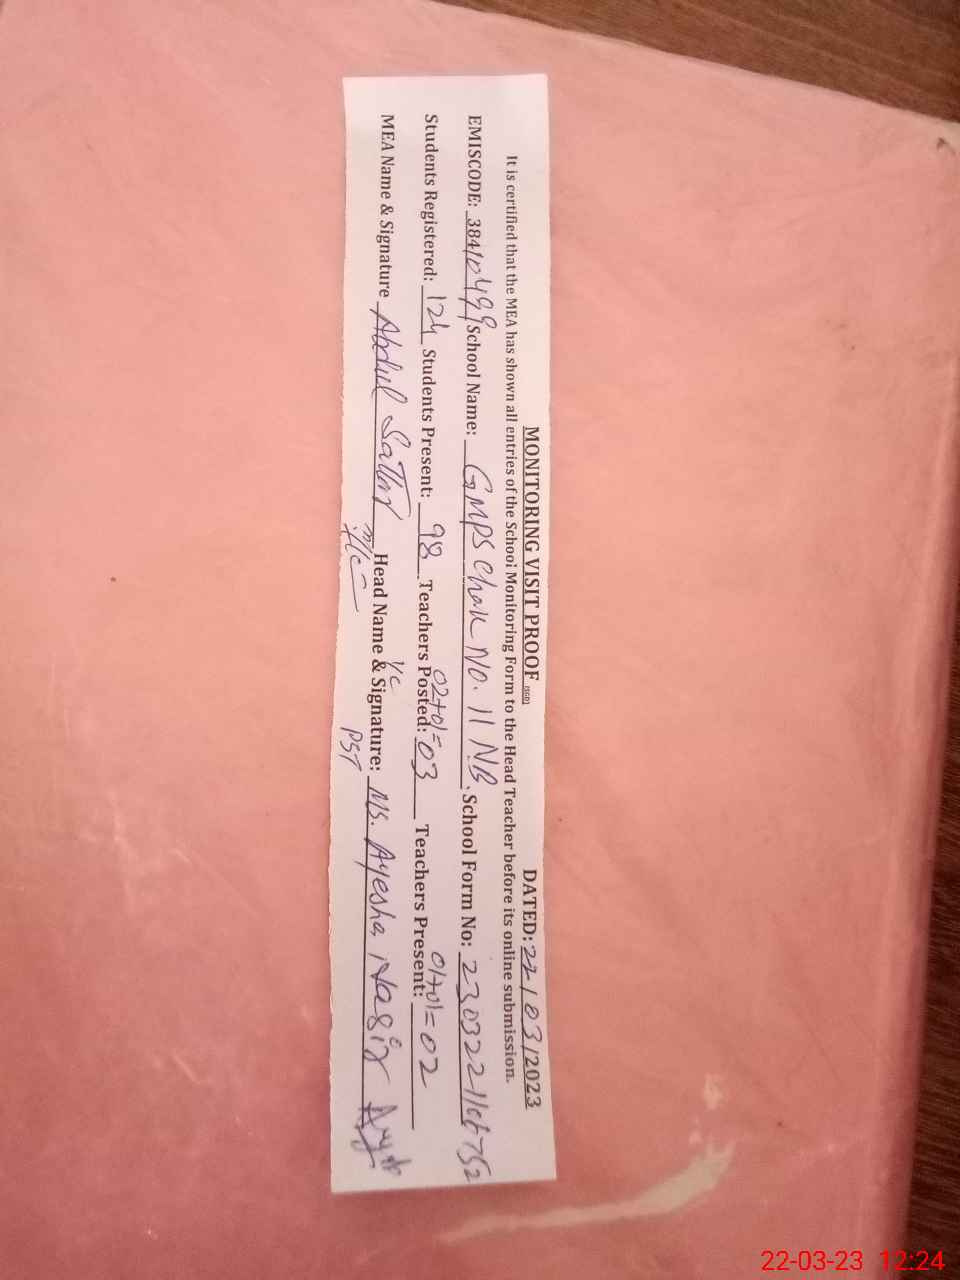 MONITORING VISIT PROOF (SGD) DATED: 22/03/2023
It is certified that the MEA has shown all entries of the School Monitoring Form to the Head Teacher before its online submission.
EMISCODE: 38410499 School Name: GMPS Chak No. 11 NB. School Form No: 2303221166752
Students Registered: 124 Students Present: 98 Teachers Posted: 02+01=03 Teachers Present: 01+01=02
MEA Name & Signature Abdul Sattar Head Name & Signature: I/C Ms. Ayesha Nasir
PST
22-03-23 12:24